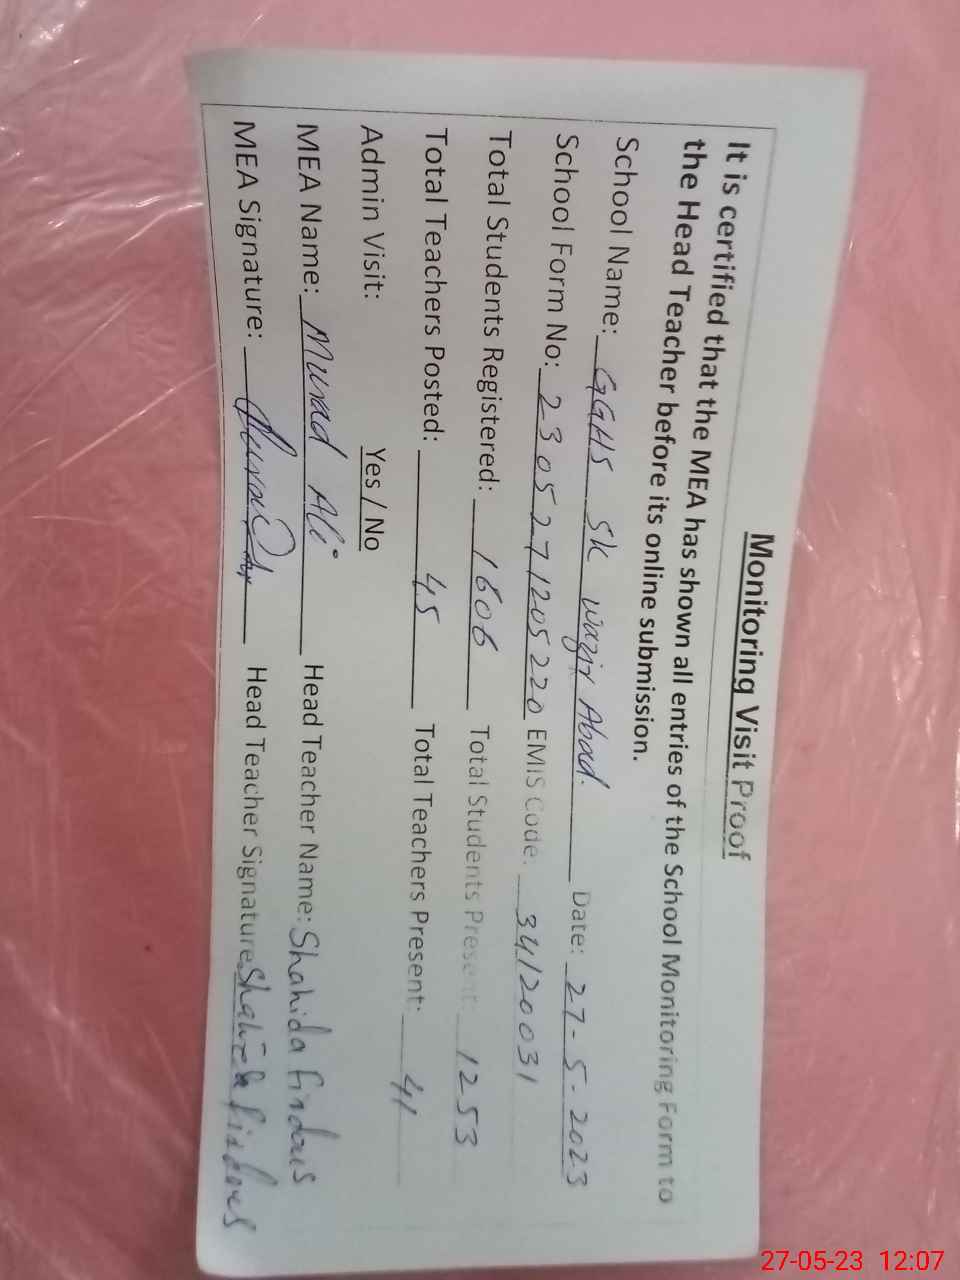 Monitoring Visit Proof
It is certified that the MEA has shown all entries of the School Monitoring Form to
the Head Teacher before its online submission.
School Name: GGHS SK Wazir Abad. Date: 27-5-2023
School Form No: 2305271205220 EMIS Code: 34120031
Total Students Registered: 1606 Total Students Present: 1253
Total Teachers Posted: 45 Total Teachers Present: 41
Admin Visit: Yes / No
MEA Name: Murad Ali Head Teacher Name: Shahida firdous
MEA Signature: Head Teacher Signature: Shahida firdous
27-05-23 12:07